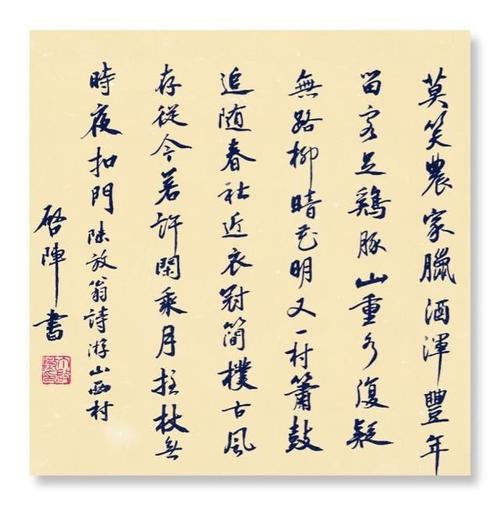 莫笑農家臘酒渾豐年
留客足鷄豚山重水復疑
無路柳暗花明又一村簫鼓
追随春社近衣冠簡樸古風
存從今若許閑乘月拄杖無
時夜扣門陸放翁詩游山西村
啓陣書